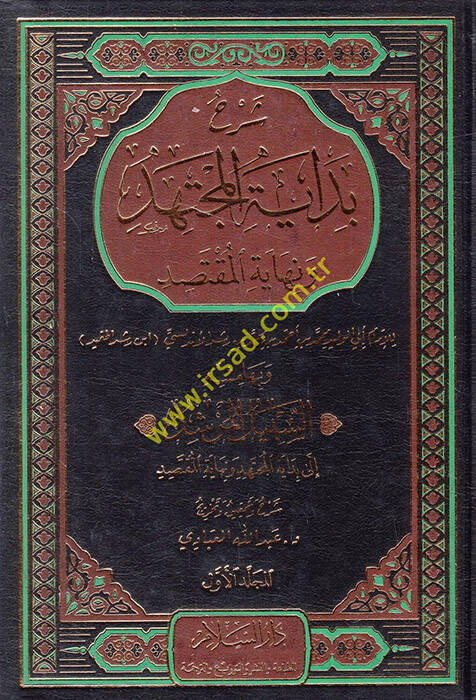 شرح
بداية المجتهد
ونهاية المقتصد
للإمام أبي الوليد محمد بن أحمد بن رشد الأندلسي (ابن رشد الحفيد)
وبهامشه
السبيل المرشد
إلى بداية المجتهد ونهاية المقتصد
شرح وتحقيق وتخريج
د. عبد الله العبادي
المجلد الأول
دار السلام
للطباعة والنشر والتوزيع والترجمة
www.irsad.com.tr